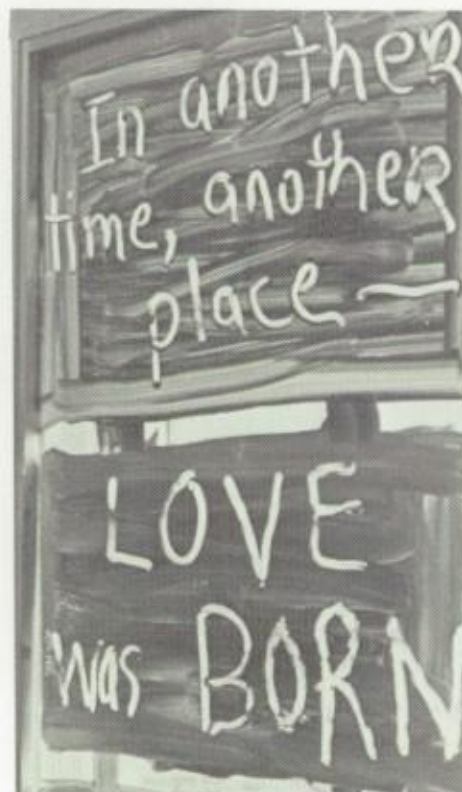 In another
time, another
place —
LOVE
was BORN